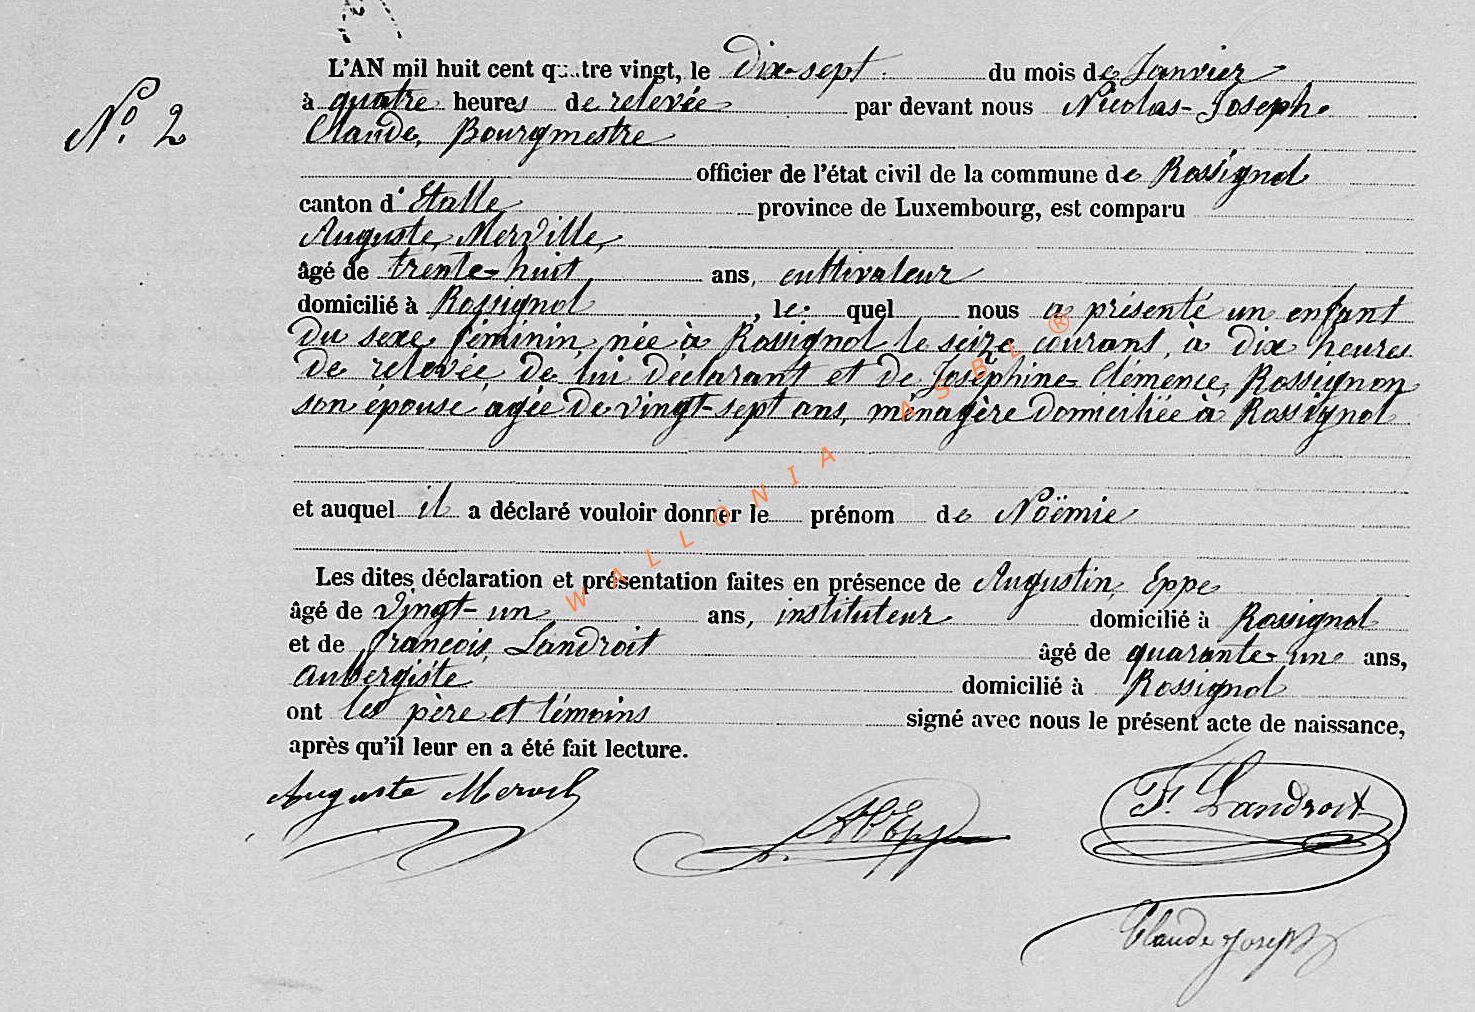 L'AN mil huit cent quatre vingt, le dix-sept. du mois de Janvier
N° 2
à quatre heures de relevée par devant nous Nicolas-Joseph
Claude, Bourgmestre
officier de l'état civil de la commune de Rossignol
canton d'Etalle province de Luxembourg, est comparu
Auguste Merville,
âgé de trente-huit ans, cultivateur
domicilié à Rossignol, lequel nous a présenté un enfant
du sexe féminin, née à Rossignol le seize courant, à dix heures
de relevée, de lui déclarant et de Joséphine-Clémence, Rossignon
son épouse agée de vingt-sept ans, ménagère domiciliée à Rossignol
et auquel il a déclaré vouloir donner le prénom de Noëmie
Les dites déclaration et présentation faites en présence de Augustin, Eppe
âgé de vingt-un ans, instituteur domicilié à Rossignol
et de François, Landroit âgé de quarante-un ans,
aubergiste domicilié à Rossignol
ont les père et témoins signé avec nous le présent acte de naissance,
après qu'il leur en a été fait lecture.
Auguste F. Landroit
Claude Joseph
WALLONIA ASBL ®